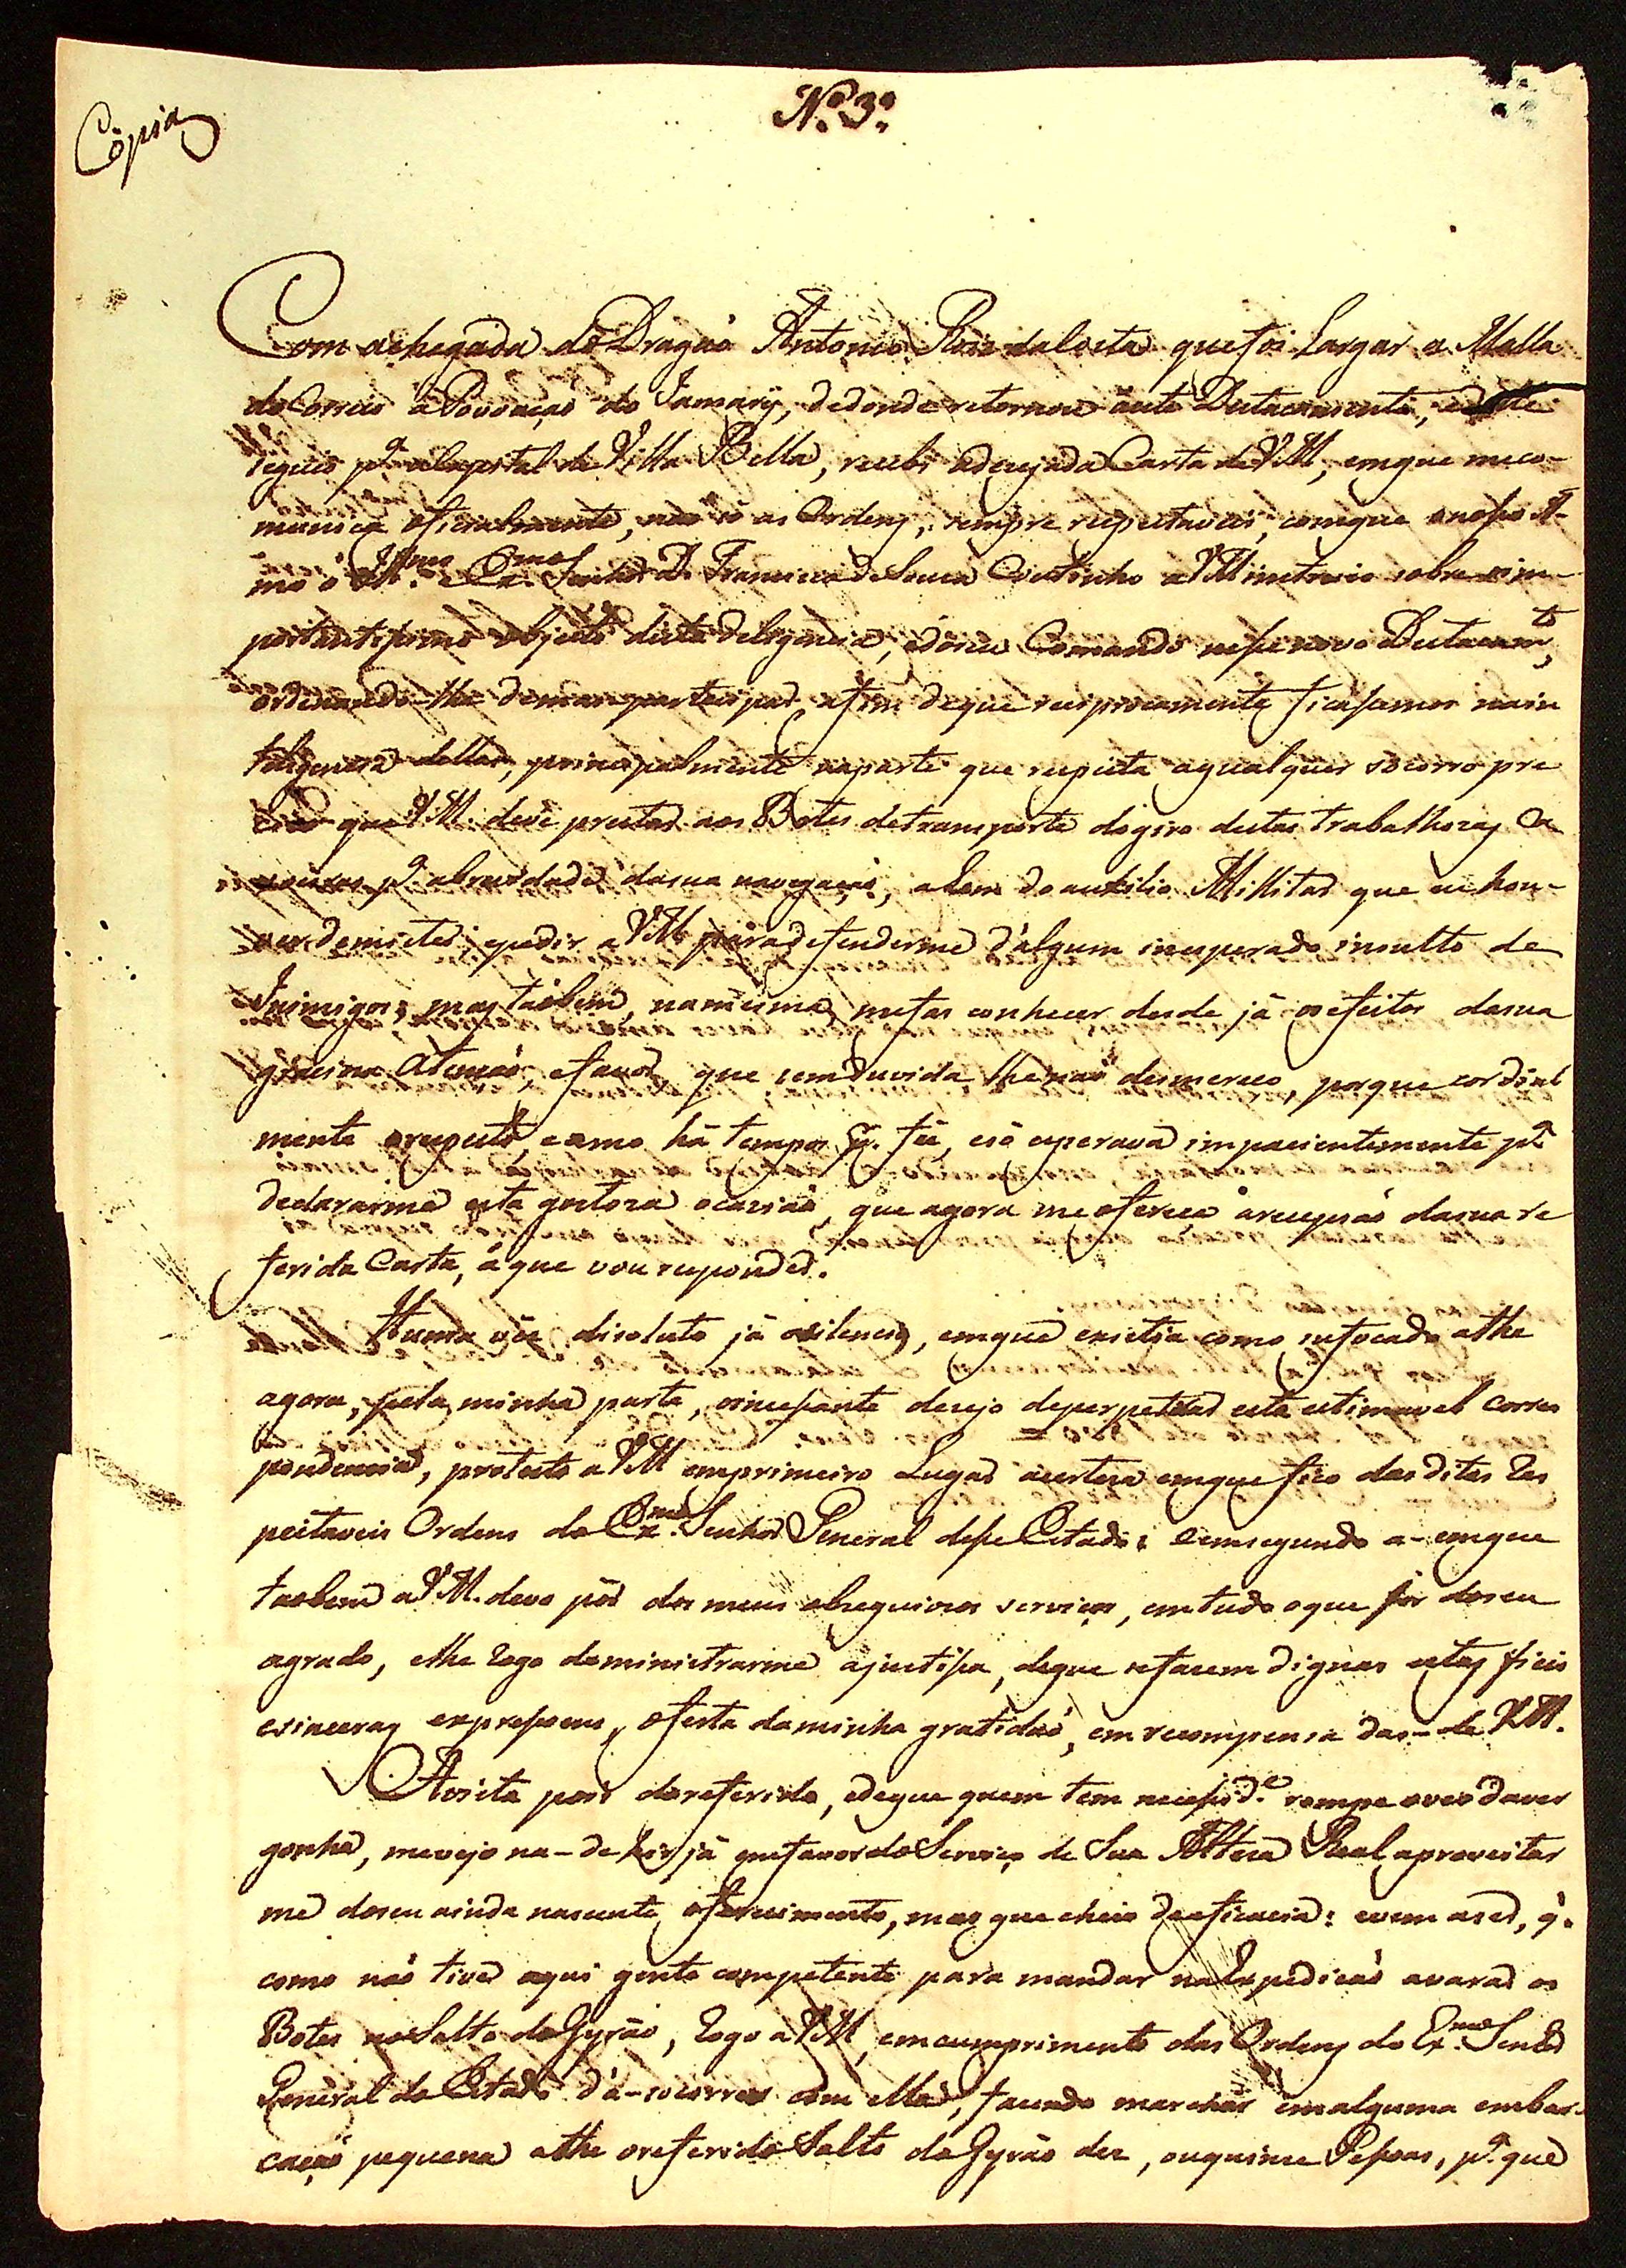 Cópia
N.º 3.º
Com achegada do Dragaõ Antonio Roiz daCosta quefoi largar a Malla
do Correio á Povoaçaõ do Jamarÿ, dedonde retornou áeste Destacamento, edeste
seguio p.ª aCapital de Villa Bella, recebi adezejada Carta de VM, emque meco-
munica oficialmente, naõ só as Ordens, sempre respeitaveis, comque onosso A-
mo o Ill.mo e Ex.mo Senhor D. Francisco deSouza Coutinho a VM instruio sobre oim-
portantissimo objecto desta deligencia, edoseu Comando nesse novo Destacam.to,
ordenando-lhe demas participar afim deque reciprocamente ficassemos nain
teligencia dellas, principalmente naparte que respeita aqualquer socorro pre
cizo que VM. deve prestar aos Botes detransporte dogiro destas trabalhozas Ca
xoeiras p.ª abrevidade dasua navegaçaõ, alem do auxilio Millitar que eu hou-
ver demister, epedir a VM para defenderme d'algum inesperado insulto de
Inimigos; mas taõbem namesma mefas conhecer desde já osefeitos dasua
genuina Atençaõ, efavor, que semduvida lhenaõ desmereço, porque cordial
mente orespeito, eamo há tempos p.r fé, esó esperava impacientemente p.ª
declararme esta gostoza ocaziaõ, que agora me oferece árecepsaõ dasua re
ferida Carta, á que vou responder.
Huma vêz disoluto já osilencio, emque existia como sufocado athe
agora, pela minha parte, oincessante desejo deperpetuar esta estimavel Corres
pondencia, protesto a VM emprimeiro Lugar acerteza emque fico das ditas Res
peitaveis Ordens do Ex.mo Senhor General desse Estado: eemsegundo a- emque
taobem a VM. devo pôr dos meus obzequiozos serviços, emtudo oque fôr doseu
agrado, elhe rogo deministrarme ajustissa, deque sefazem dignas estas fieis
esinceras expressoens, oferta daminha gratidaõ, em recompensa das- de VM.
Avista pois doreferido, edeque quem tem necessid.e rompe oveo daver
gonha, mevejo na- de hir já emfavor do Serviço de Sua Alteza Real, aproveitar
me doseu ainda nascente oferecimento, mas que cheio deeficacia: evem aser, q.
como naõ tive aqui gente competente para mandar naExpediçaõ avarar os
Botes noSalto doGyráo, rogo a VM, emcumprimento das Ordens do Ex.mo Senhor
General do Estado d'a-socorrer com ella, fazendo marchar emalguma embar-
caçaõ pequena athe oreferido Salto do Gyráo dez, ouquinze Pessoas, p.ª que